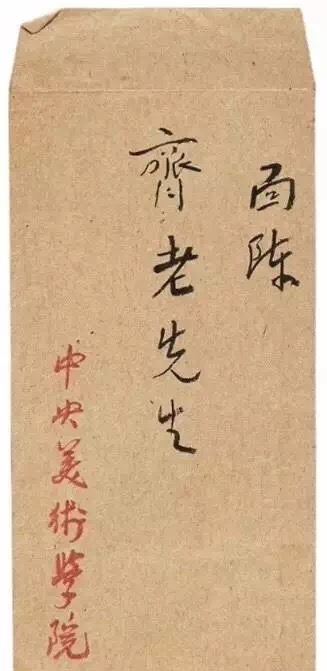 面陈
齊老先生
中央美術學院